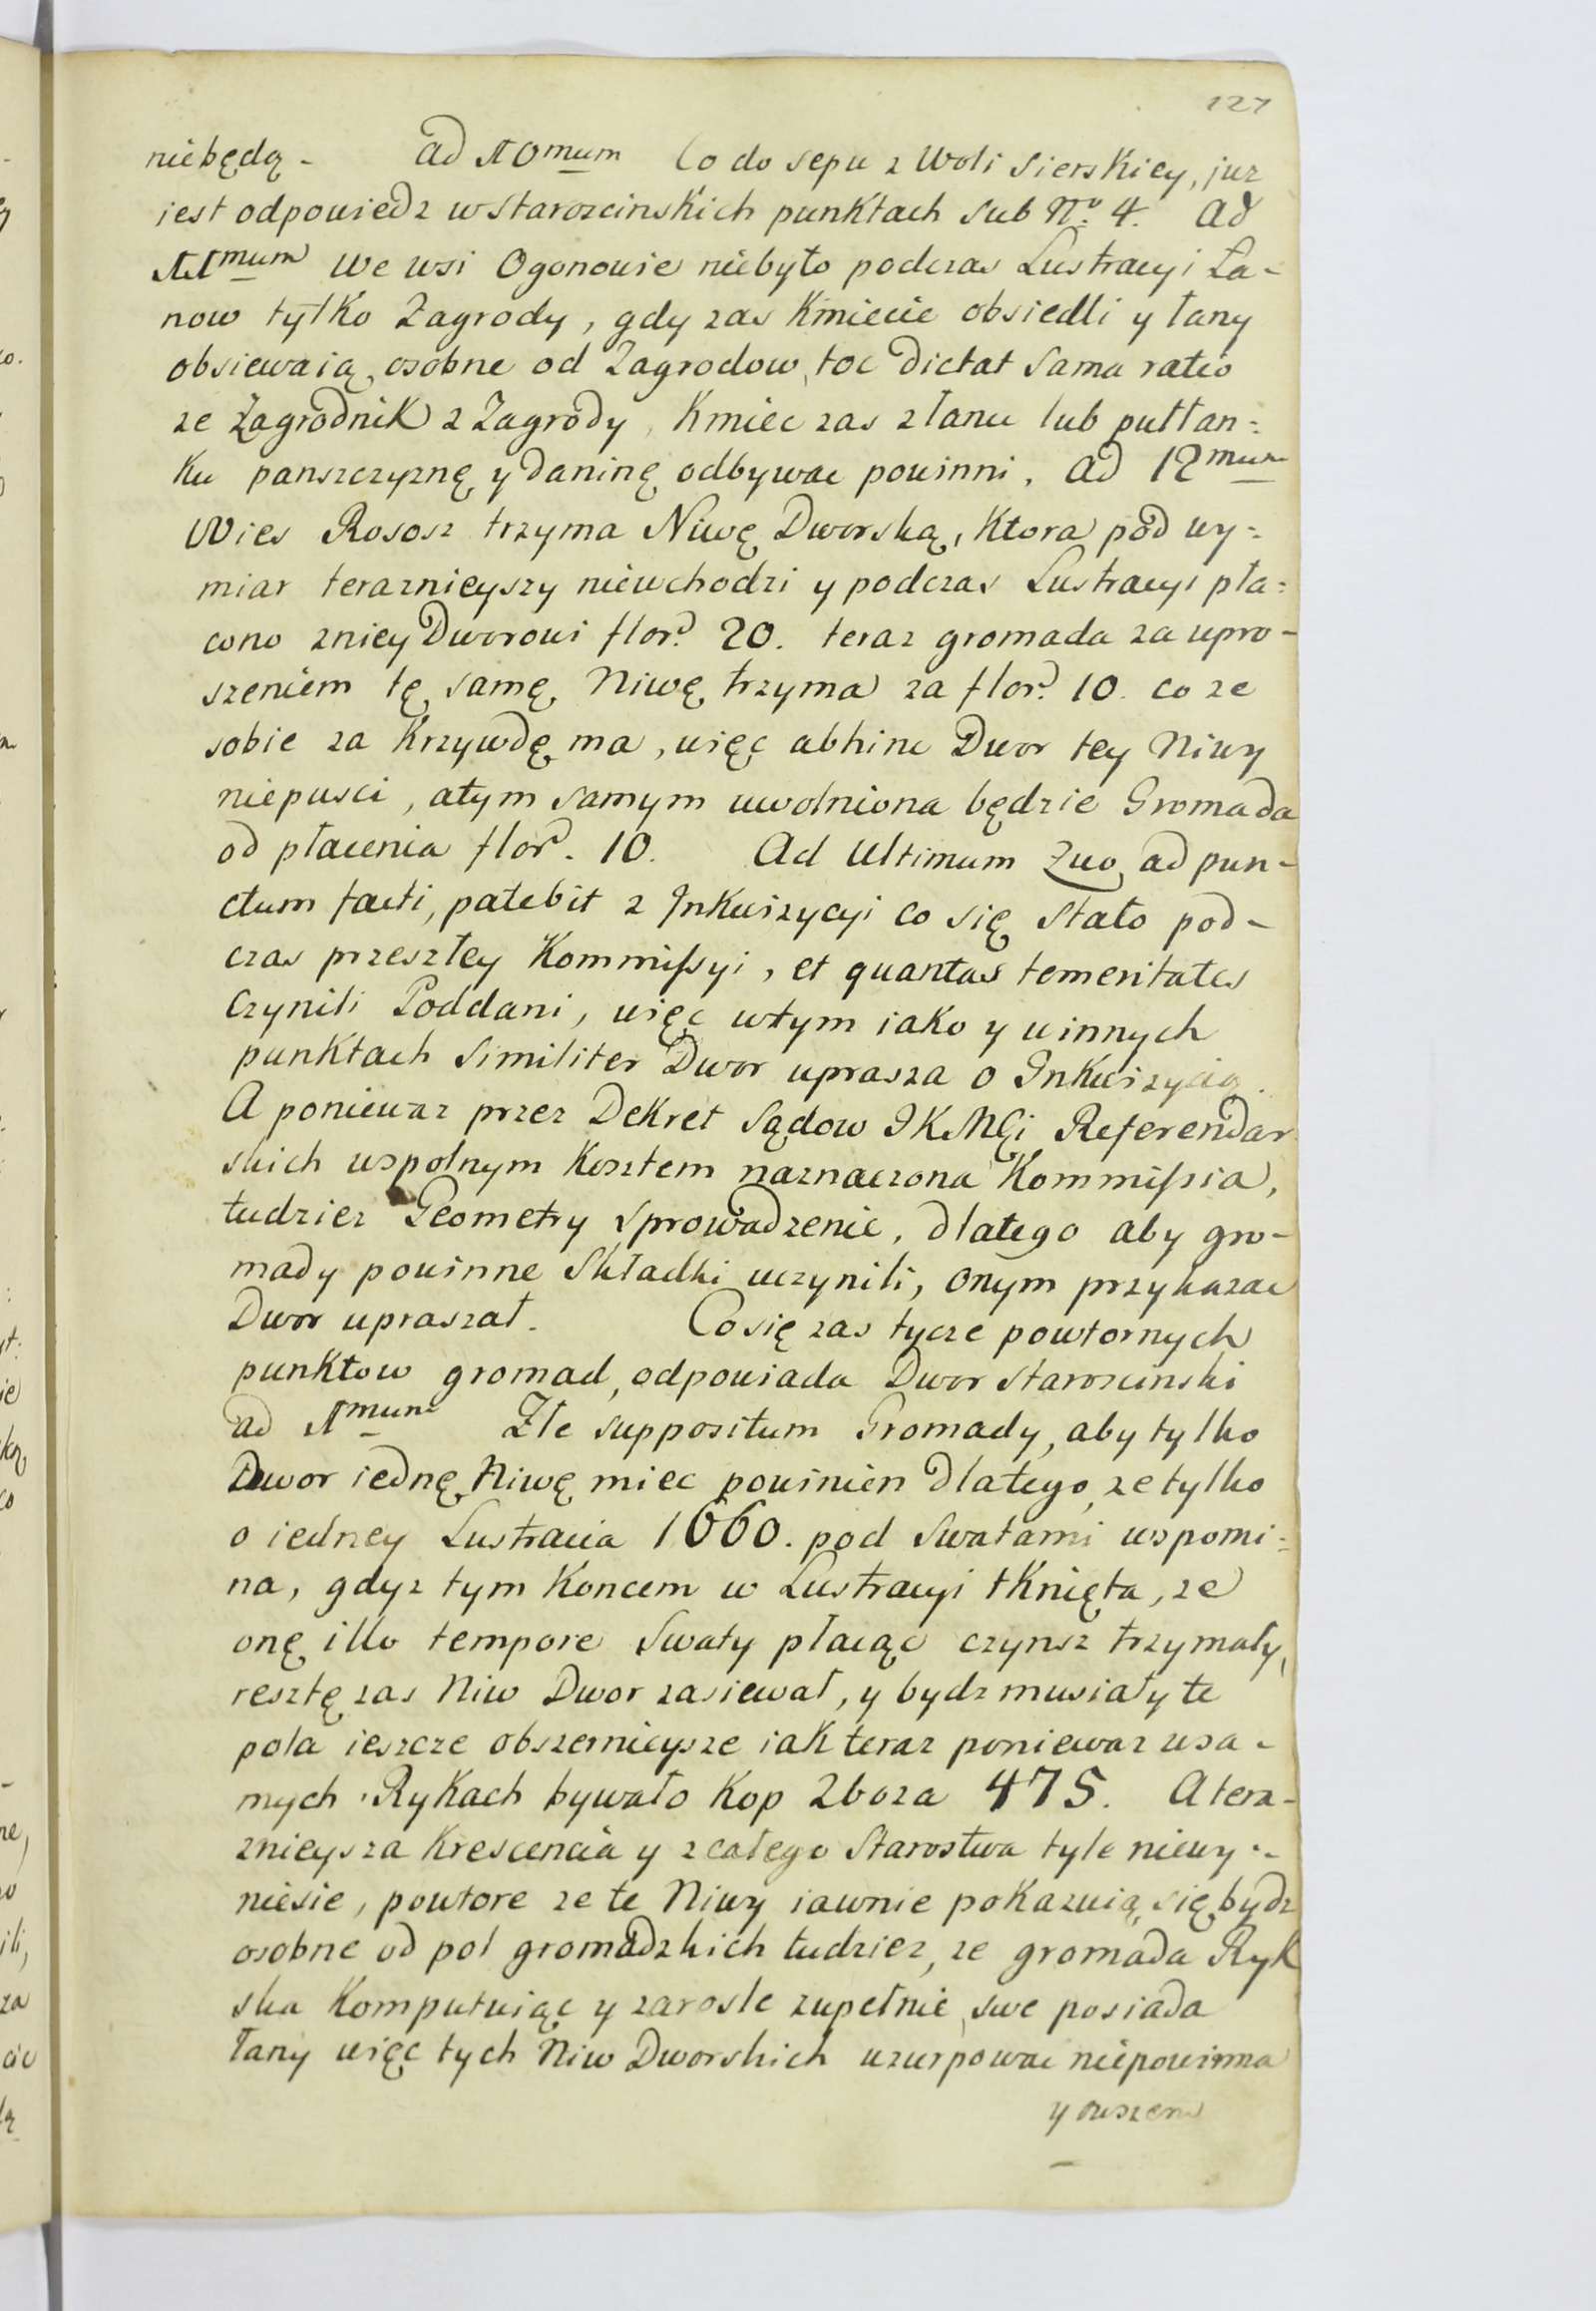 127
niebędą - Ad 10mum Co do sepu z Woli Sierskiey, juz
jest odpowiedz w Starozcinskich punktach sub No. 4. Ad
11mum We wsi Ogonowie niebyło podczas Lustracyi Ła-
now tylko Zagrody, gdy zas Kmiecie obsiedli y łany
obsiewaią osobne od Zagrodow, toc dictat sama ratio
ze Zagrodnik z Zagrody, Kmiec zas złanu lub pułłan:
ku panszczyznę y daninę odbywac powinni. Ad 12mum
Wies Rososz trzyma Niwę Dworską, Ktora pod wy:
miar teraznieyszy niewchodzi y podczas Lustracyi pła:
cono zniey Dworowi flor. 20. teraz gromada za upro-
szeniem tę samę Niwę trzyma za flor. 10. co ze
sobie za Krzywdę ma, więc abhinc Dwor tey Niwy
niepusci, atym samym uwolniona będzie Gromada
od płacenia flor. 10. Ad Ultimum Quo ad pun-
ctum facti, patebit z Inkwizycyi co się stało pod-
czas przeszłey Kommissyi, et quantas temeritates
czynili Poddani, więc wtym iako y winnych
punktach similiter Dwor uprasza o Inkwizycią.
A poniewaz przez Dekret Sądow JKMCi Referendar
skich wspolnym Kosztem naznaczona Kommissia,
tudziez Geometry sprowadzenie, dlatego aby gro-
mady powinne składki uczynili, onym przykazac
Dwor upraszał. Co się zas tycze powtornych
punktow gromad, odpowiada Dwor Starozcinski
ad 1mum Złe suppositum Gromady, aby tylko
Dwor iednę Niwę miec powinien dlatego, ze tylko
o iedney Lustracia 1660. pod Swatami wspomi:
na, gdyz tym Koncem w Lustracyi tknięta, ze
onę illo tempore Swaty płacąc czynsz trzymały,
resztę zas Niw Dwor zasiewał, y bydz musiały te
pola ieszcze obszernieysze iak teraz poniewaz wsa-
mych Rykach bywało Kop Zboza 475. A tera-
znieysza Krescencia y zcałego Starostwa tyle niewy-
niesie, powtore ze te Niwy iawnie pokazuią się bydz
osobne od pol gromadzkich tudziez, ze gromada Ryk
ska Komputuiąc y zarosle zupełnie swe posiada
łany więc tych Niw Dworskich uzurpowac niepowinna
y owszem